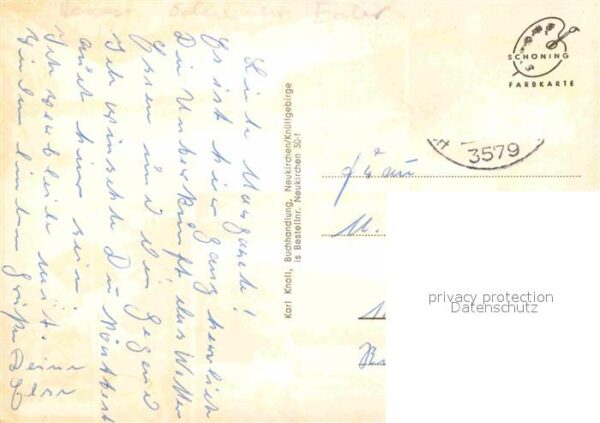 Liebe Margareth!
Es ist hier ganz herrlich
Die Unterkunft, das Wetter
Essen und die Gegend
Ich wünschte Du könntest
auch hier sein!
Ich verbleibe mit
vielen lieben Grüßen
Karl Knoll, Buchhandlung, Neukirchen/Knüllgebirge
is Bestellnr. Neukirchen 30-1
SCHÖNING
FARBKARTE
3579
M.
privacy protection
Datenschutz